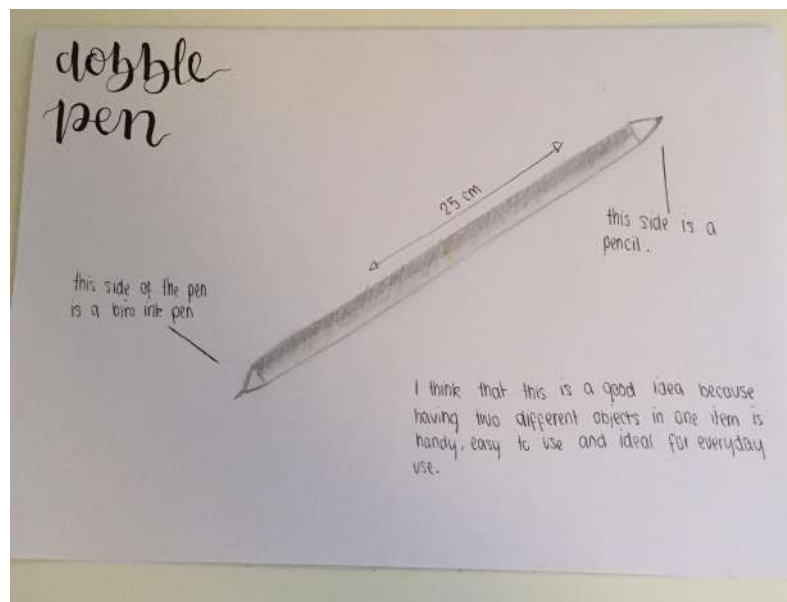 dobble
pen
25 cm
this side is a
pencil.
this side of the pen
is a biro ink pen
I think that this is a good idea because
having two different objects in one item is
handy, easy to use and ideal for everyday
use.